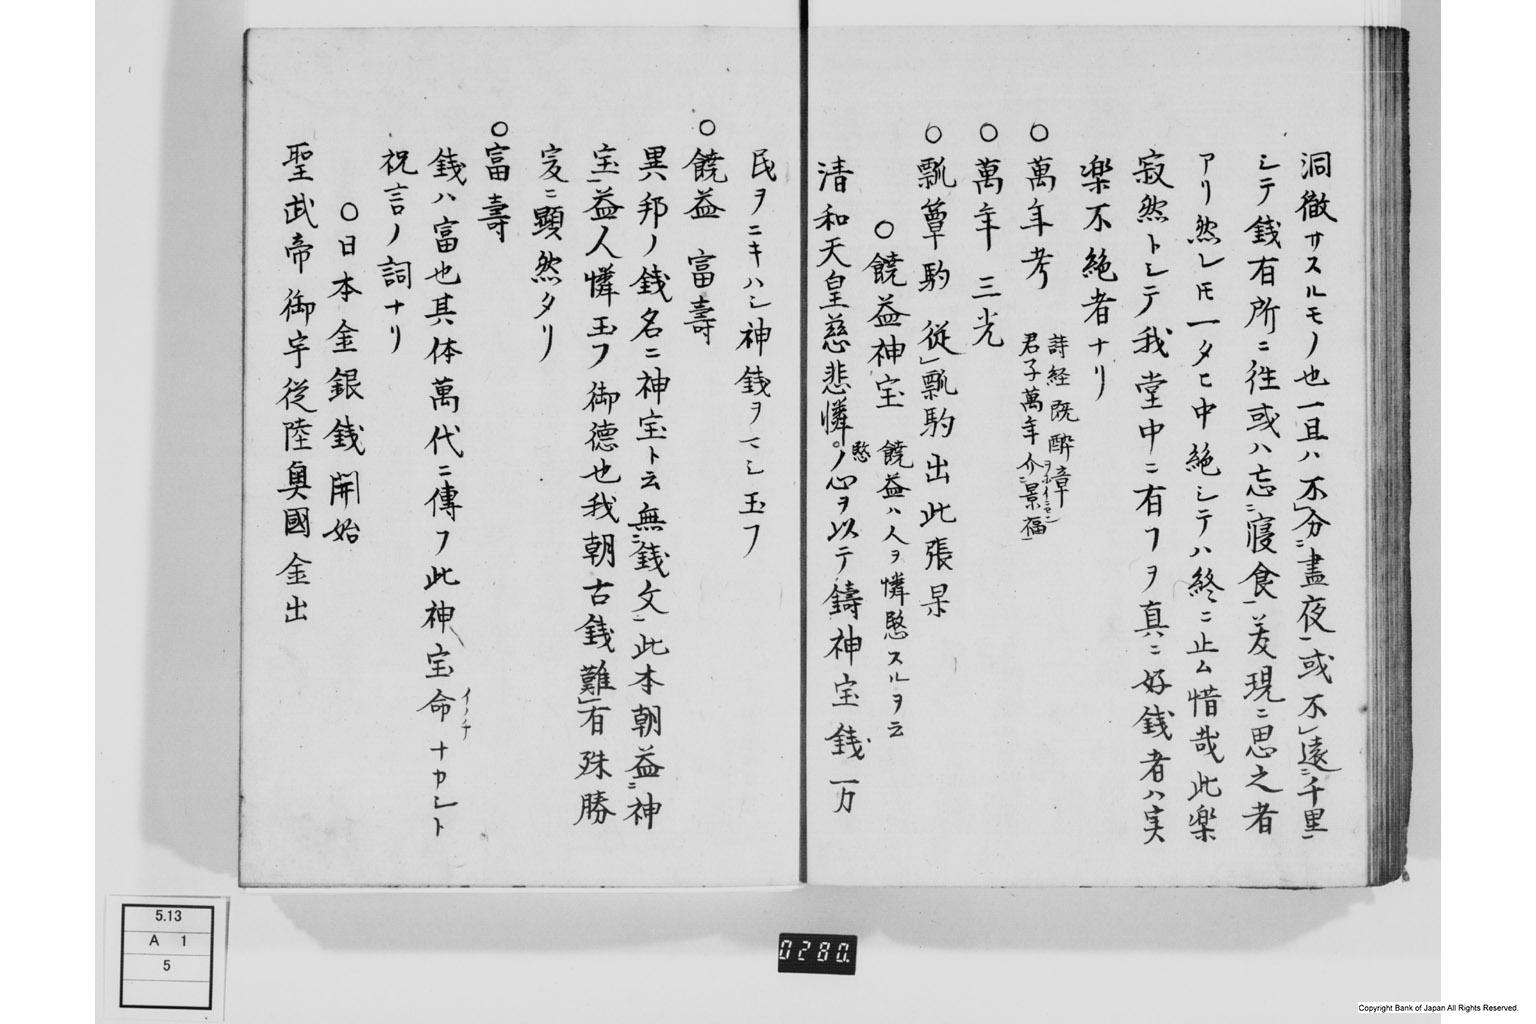 洞徹サスルモノ也一旦ハ不分ニ晝夜一或不遠ニ千里一
シテ銭有所ニ徃或ハ忘ニ寝食一爰現ニ思之者
アリ然レ𪜈一タヒ中絶シテハ終ニ止ム惜哉此楽
寂然トシテ我堂中ニ有フヲ真ニ好銭者ハ実
楽不絶者ナリ
○萬年考
詩経既酔章
君子萬年介ニ景福一
○萬年 三光
○瓢簞駒 従瓢駒出此張杲
○饒益神宝 饒益ハ人ヲ憐愍スルヲ云
清和天皇慈悲憐愍ノ心ヲ以テ鋳神宝銭一万
民ヲニキハシ神銭ヲマシ玉フ
○饒益 富壽
異邦ノ銭名ニ神宝ト云無ニ銭文一此本朝益ニ神
宝一益人憐玉フ御德也我朝古銭難有殊勝
爰ニ顕然タリ
○富壽
銭ハ富也其体萬代ニ傳フ此神宝命ナカシト
イノチ
祝言ノ詞ナリ
○日本金銀銭開始
聖武帝御宇従陸奥國金出
5.13
A 1
5
0280.
Copyright Bank of Japan All Rights Reserved.